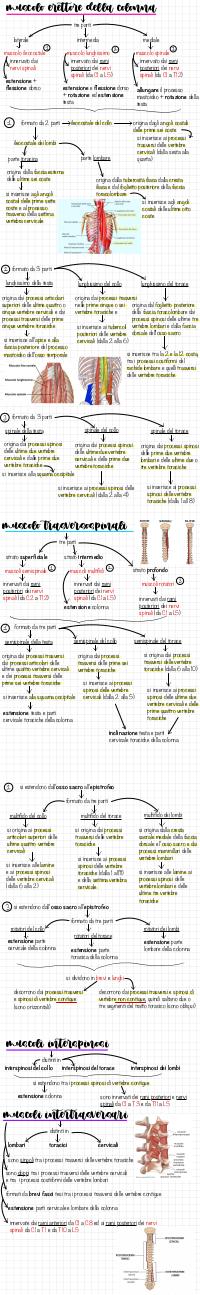 muscolo erettore della colonna
tre parti
laterale
intermedia
mediale
muscolo ileocostale
muscolo lunghissimo
muscolo spinale
innervati dai
nervi spinali
innervato dai rami
posteriori dei nervi
spinali (da C1 a L5)
innervato dai rami
posteriori dei nervi
spinali (da C2 a T12)
estensione +
flessione dorso
estensione e flessione dorso
+ rotazione ed estensione
testa
allungano il processo
mastoideo + rotazione della
testa
formato da 2 parti
ileocostale del collo
origina dagli angoli costali
delle prime sei coste
si inserisce ai processi
traversi delle vertebre
cervicali (dalla sesta alla
quarta)
ileocostale dei lombi
parte toracica
parte lombare
origina dalla fascia esterna
delle ultime sei coste
si inserisce agli angoli
costali delle prime sette
coste e al processo
traverso della settima
vertebra cervicale
origina dalla tuberosità iliaca dalla cresta
iliaca e dal foglietto posteriore della fascia
toracolombare
si inserisce agli angoli
costali delle ultime otto
coste
formato da 3 parti
lunghissimo della testa
lunghissimo del collo
lunghissimo del torace
origina dai processi articolari
superiori delle ultime quattro o
cinque vertebre cervicali e dai
processi traversi delle prime
cinque vertebre toraciche
si inserisce all'apice e alla
faccia posteriore del processo
mastoideo dell'osso temporale
origina dai processi traversi
nelle prime cinque o sei
vertebre toraciche
si inserisce ai tubercoli
posteriori delle vertebre
cervicali (dalla 2 alla 6)
origina dal foglietto posteriore
della fascia toracolombare dai
processi spinosi delle ultime tre
vertebre lombari e dalla faccia
dorsale dell'osso sacro
si inserisce tra la 2 e la 12 costa,
tra i processi costiformi del
rachide lombare e quelli traversi
delle vertebre toraciche
formato da 3 parti
spinale della testa
spinale del collo
spinale del torace
origina dai processi spinosi
delle ultime due vertebre
cervicali e dalle prime due
vertebre toraciche
si inserisce alla squama occipitale
origina dai processi spinosi
delle ultime due vertebre
cervicali e delle prime due
vertebre toraciche
si inserisce ai processi spinosi delle
vertebre cervicali (dalla 2 alla 4)
origina dai processi spinosi
delle prime due vertebre
lombari e delle ultime due o
tre vertebre toraciche
si inserisce ai processi
spinosi delle vertebre
toraciche (dalla 1 all 8)
muscolo trasversospinali
tre parti
strato superficiale
strato intermedio
strato profondo
muscoli semispinali
muscoli multifidi
muscoli rotatori
innervati dai rami
posteriori dei nervi
spinali (da C2 a T12)
innervati dai rami
posteriori dei nervi
spinali (da C1 a L5)
innervati dai rami
posteriori dei nervi
spinali (da C1 a L5)
estensione colonna
formato da tre parti
semispinale della testa
semispinale del collo
semispinale del torace
origina dai processi traversi
dai processi articolari delle
ultime quattro vertebre cervicali
e dai processi traversi delle
prime sei vertebre toraciche
si inserisce alla squama occipitale
estensione testa e parti
cervicale toraciche della colonna
origina dai processi
traversi delle prime sei
vertebre toraciche
si inserisce ai processi
spinosi delle vertebre
cervicali (dalla 2 alla 5)
origina dai processi
traversi delle vertebre
toraciche (dalla 6 alla 10)
si inserisce ai processi
spinosi delle ultime due
vertebre cervicali e delle
prime quattro vertebre
toraciche
inclinazione testa e parti
cervicale toraciche della colonna
si estendono dall'osso sacro all'epistrofeo
formato da tre parti
multifido del collo
multifido del torace
multifido dei lombi
si origina ai processi
articolari inferiori delle
ultime quattro vertebre
cervicali
si inserisce alle lamine
e ai processi spinosi
delle vertebre cervicali
(dalla 6 alla 2)
si origina dai processi
traversi delle vertebre
toraciche
si inserisce ai processi
spinosi delle vertebre
toraciche (dalla 1 all'11)
e della settima vertebra
cervicale
si origina dalla cresta
sacrale mediale della faccia
dorsale dell'osso sacro e dai
processi mammillari delle
vertebre lombari
si inserisce alle lamine ai
processi spinosi delle
vertebre lombari e delle
ultime tre vertebre
toraciche
si estendono dall'osso sacro all'epistrofeo
formato da tre parti
rotatori del collo
rotatori del torace
rotatori dei lombi
estensione parti
cervicale della colonna
estensione parti
toracica della colonna
estensione parti
lombare della colonna
si dividono in brevi e lunghi
decorrono da processi traversi
e spinosi di vertebre contigue
(sono orizzontali)
decorrono da processi traversi e spinosi di
vertebre non contigue, quindi saltano due o
tre segmenti del resto toracico (sono obliqui)
muscoli interspinosi
distinti in
interspinosi del collo
interspinosi del torace
interspinosi dei lombi
si estendono tra i processi spinosi di vertebre contigue
estensione colonna
sono innervati dai rami posteriori dei nervi
spinali da C1 a T3 e da T11 a L5
muscoli intertrasversari
distinti in
lombari
toracici
cervicali
sono singoli tra i processi traversi delle vertebre toraciche
sono doppi tra i processi traversi delle vertebre cervicali
e tra i processi costiformi delle vertebre lombari
formati da brevi fasci tesi tra i processi traversi delle vertebre contigue
estensione parti cervicale e lombare della colonna
innervati dai rami anteriori da C1 a C8 ed ai rami posteriori dei nervi
spinali da C1 a T1 e da T10 a L5